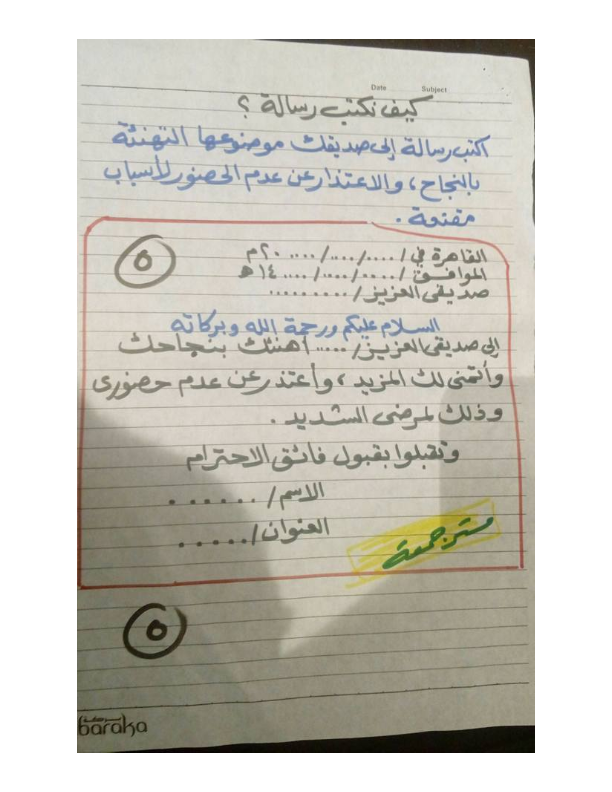 Date Subject
كيف نكتب رسالة ؟
اكتب رسالة إلى صديقك موضوعها التهنئة
بالنجاح ، والاعتذار عن عدم الحضور لأسباب
مقنعة .
القاهرة في / ..../..../.... ٢٠م
الموافق / ..../..../.... ١٤هـ
صديقى العزيز / .........
السلام عليكم ورحمة الله وبركاته
إلى صديقى العزيز / ..... أهنئك بنجاحك
وأتمنى لك المزيد ، وأعتذر عن عدم حضورى
وذلك لمرضى الشديد .
وتقبلوا بقبول فائق الاحترام
الاسم / ......
العنوان / .....
مترجمة
٥
٥
بركة
baraka